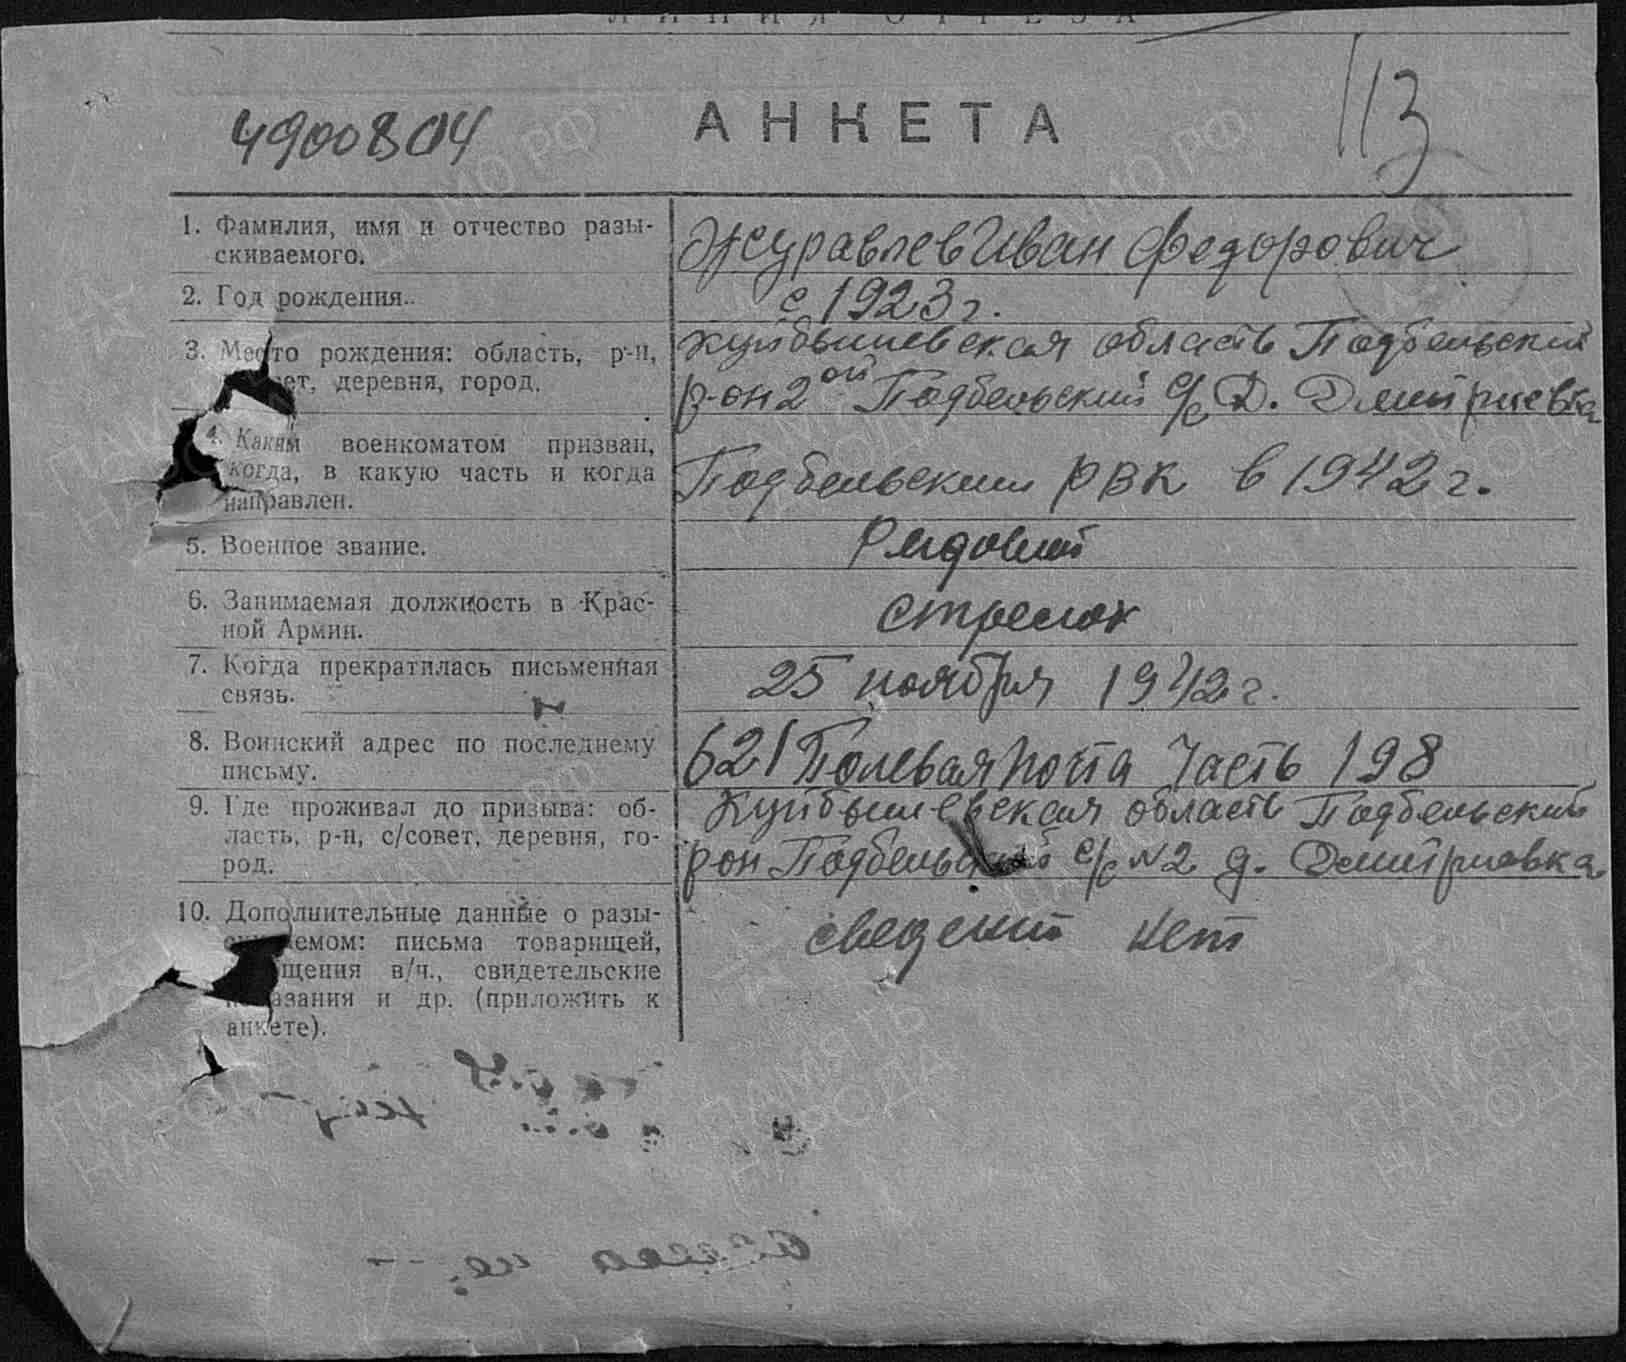 ЛИНИЯ ОТРЕЗА
4900804
АНКЕТА
113
1. Фамилия, имя и отчество разы-
скиваемого.
Журавлев Иван Федорович
2. Год рождения.
с 1923 г.
3. Место рождения: область, р-н,
деревня, город.
Куйбышевская область Подбельский
р-он 2ой Подбельский с/с Д. Дмитриевка
4. Каким военкоматом призван,
когда, в какую часть и когда
направлен.
Подбельским РВК в 1942 г.
5. Военное звание.
Рядовой
6. Занимаемая должность в Крас-
ной Армии.
стрелок
7. Когда прекратилась письменная
связь.
25 ноября 1942 г.
8. Воинский адрес по последнему
письму.
621 Полевая почта Часть 198
9. Где проживал до призыва: об-
ласть, р-н, с/совет, деревня, го-
род.
Куйбышевская область Подбельский
рон Подбельский с/с №2 д. Дмитриевка
10. Дополнительные данные о разы-
скиваемом: письма товарищей,
в/ч., свидетельские
показания и др. (приложить к
анкете).
сведений нет
ПАМЯТЬ
НАРОДА